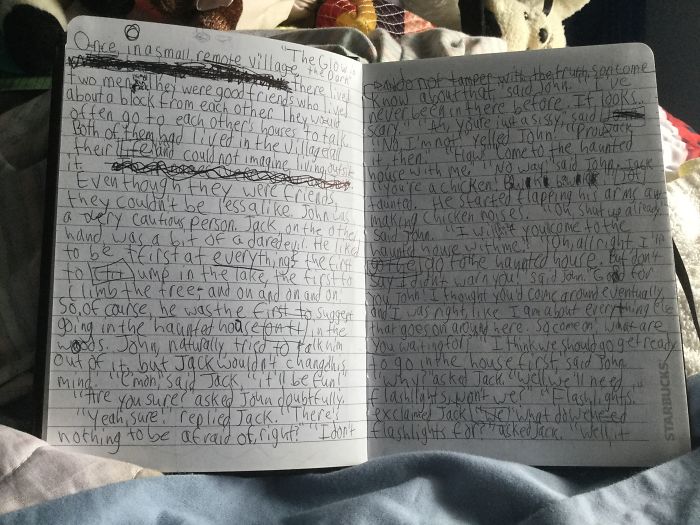 "The Glow in
the Dark"
Once in a small remote village
there lived
two men. They were good friends who lived
about a block from each other. They would
often go to each other's houses to talk.
Both of them had lived in the village all
their life and could not imagine living outside
it
Even though they were friends,
they couldn't be less alike. John was
a very cautious person. Jack, on the other
hand, was a bit of a daredevil. He liked
to be first at everything, the first
to jump in the lake, the first to
climb the tree, and on and on and on.
So, of course, he was the first to suggest
going in the haunted house in the
woods. John, naturally tried to talk him
out of it, but Jack wouldn't change his
mind. "C'mon," said Jack, "it'll be fun!"
"Are you sure?" asked John doubtfully.
"Yeah, sure." replied Jack. "There's
nothing to be afraid of, right?" "I don't
know about that," said John. "I've
never been in there before. It looks
scary." "Ah, you're just a sissy," said
Jack
"No I'm not," yelled John! "Prove
it then." "How?" "Come to the haunted
house with me." "No way," said John. Jack
"you're a chicken!
taunted. He started flapping his arms and
making chicken noises. "Oh shut up already,"
said John. "I will
haunted house with me." "Oh, all right, I'll
go to the haunted house. But don't
say I didn't warn you," said John. "Good for
you John. I thought you'd come around eventually
and I was right like I am about everything else
that goes on around here. So come on, what are
you waiting for." "I think we should go get ready
to go in the house first," said John.
"Why?" asked Jack. "Well we'll need
flashlights, won't we?" "Flashlights,"
exclaimed Jack! "What do we need
flashlights for?" asked Jack. "Well, it
STARBUCKS